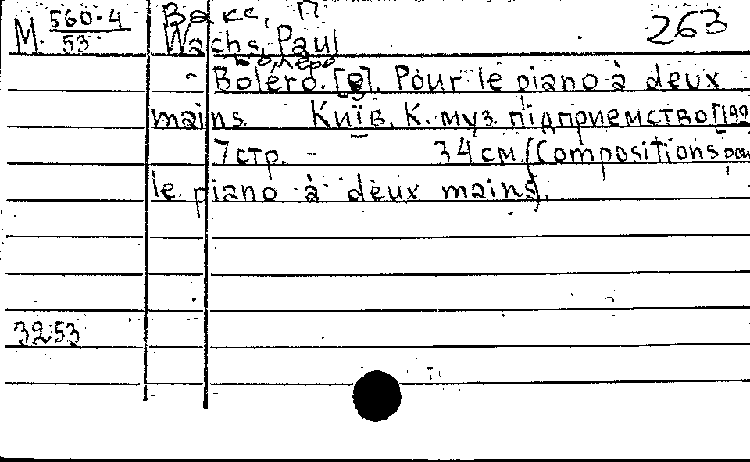 М 560-4 / 53
Вакс, П
263
Wachs, Paul
Болеро
- Boléro. [e]. Pour le piano à deux
mains. Київ, К. муз. підприємство [192
7 стр. - 34 см (Compositions pour
le piano à deux mains).
3253